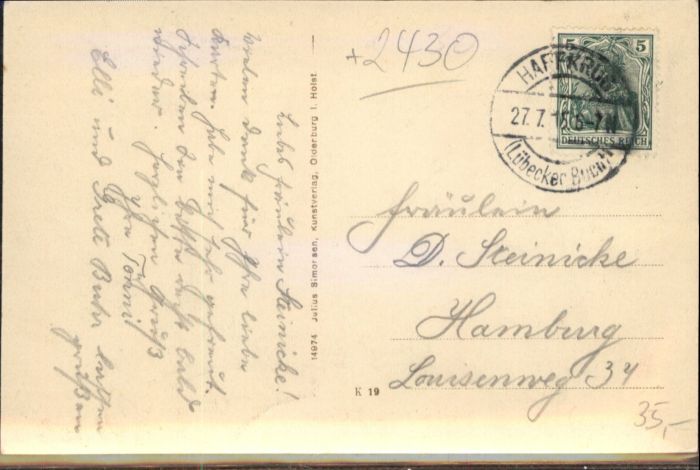 Liebes Fräulein Steinicke!
Vielen Dank für Ihre liebe
Karten habe mich sehr gefreut.
Schreiben Sie bitte recht bald
wieder. Herzlichen Gruß
Ihre Tommi
Elli und Grete Buhr lassen
grüßen
14974 Julius Simonsen, Kunstverlag, Oldenburg i. Holst.
K 19
+2430
5 5
DEUTSCHES REICH
HAFFKRUG
27. 7.
(Lübecker Bucht)
Fräulein
D. Steinicke
Hamburg
Louisenweg 34
35,-